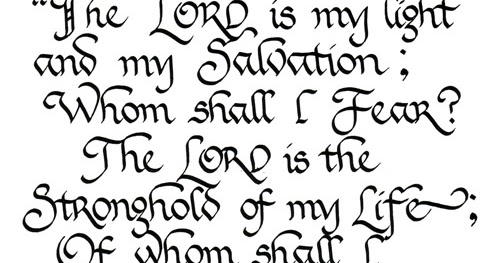 "The LORD is my light
and my Salvation ;
Whom shall I Fear?
The LORD is the
Stronghold of my Life ;
Of whom shall I